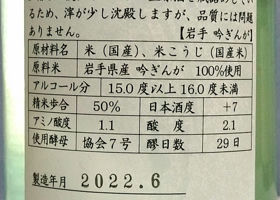 るため、滓が少し沈殿しますが、品質には問題
ありません。 【岩手 吟ぎんが】
原材料名 米(国産)、米こうじ(国産米)
原料米 岩手県産 吟ぎんが 100%使用
アルコール分 15.0 度以上 16.0 度未満
精米歩合 50% 日本酒度 +7
アミノ酸度 1.1 酸度 2.1
使用酵母 協会7号 醪日数 29日
製造年月 2022.6